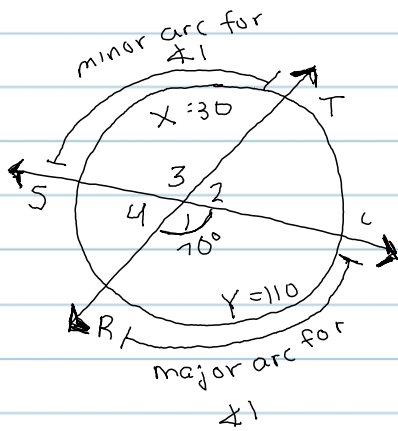 minor arc for
∡1
T
X = 30
3
S
2
4
1
70°
C
Y = 110
R
major arc for
∡1